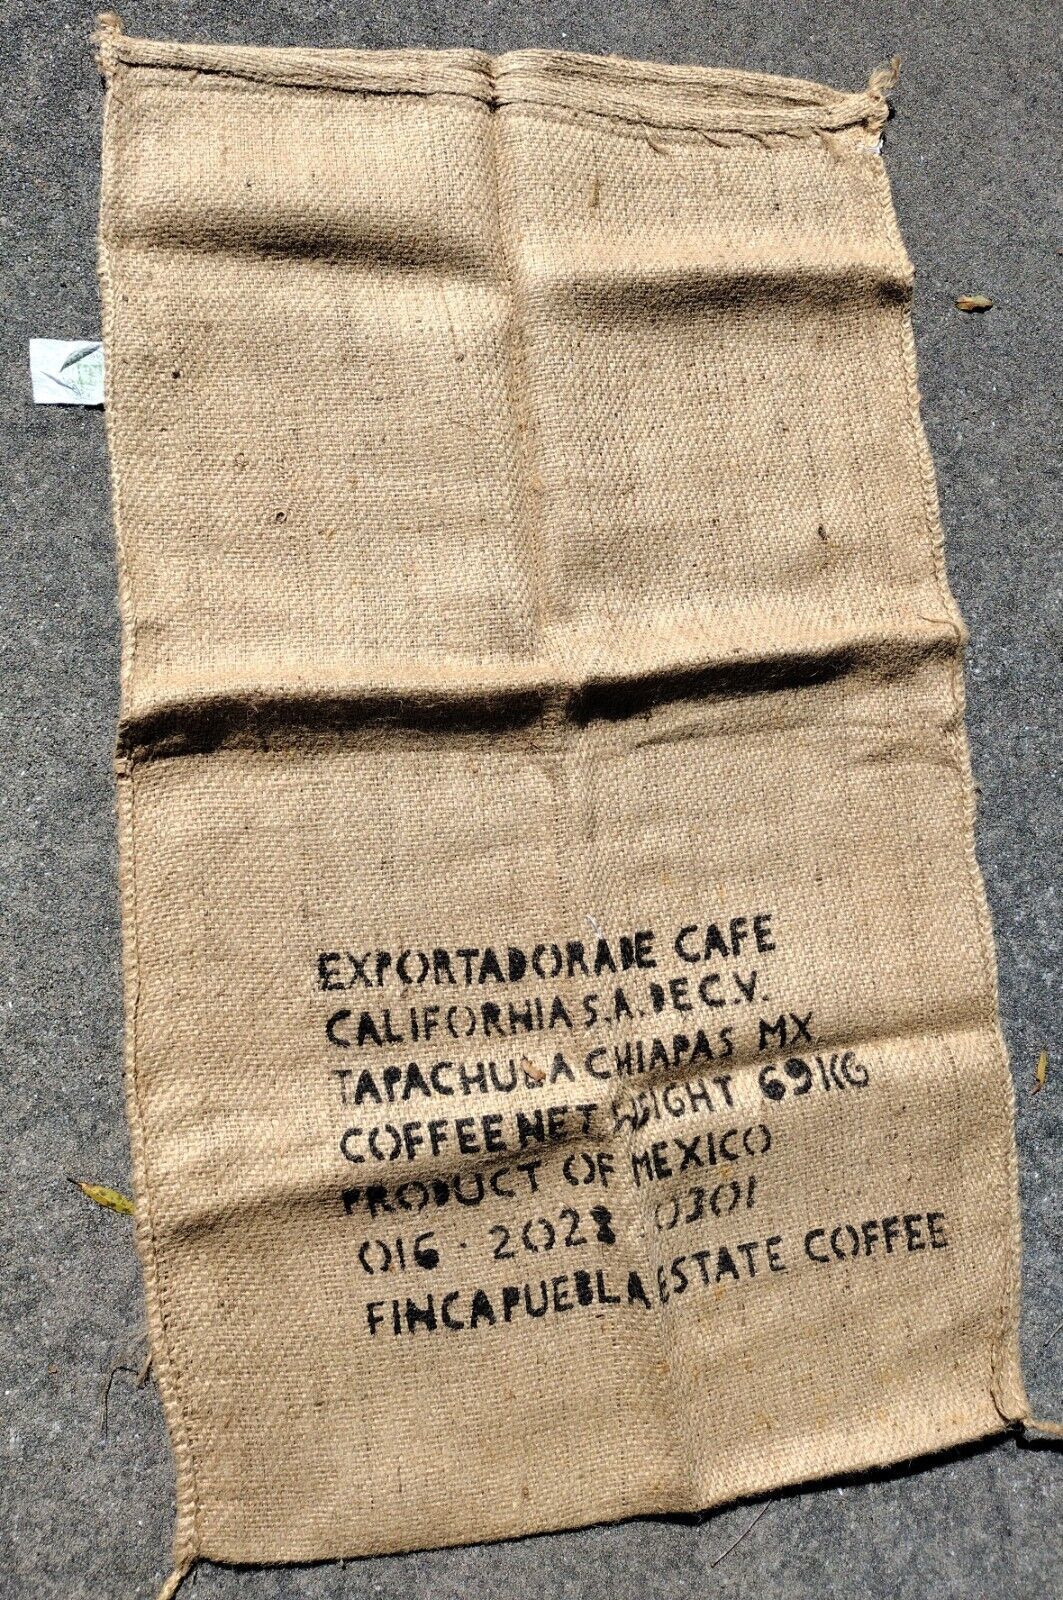 EXPORTADORA DE CAFE
CALIFORNIA S.A. DE C.V.
TAPACHULA CHIAPAS MX
COFFEE NET WEIGHT 69KG
PRODUCT OF MEXICO
016 - 2028 0301
FINCA PUEBLA ESTATE COFFEE